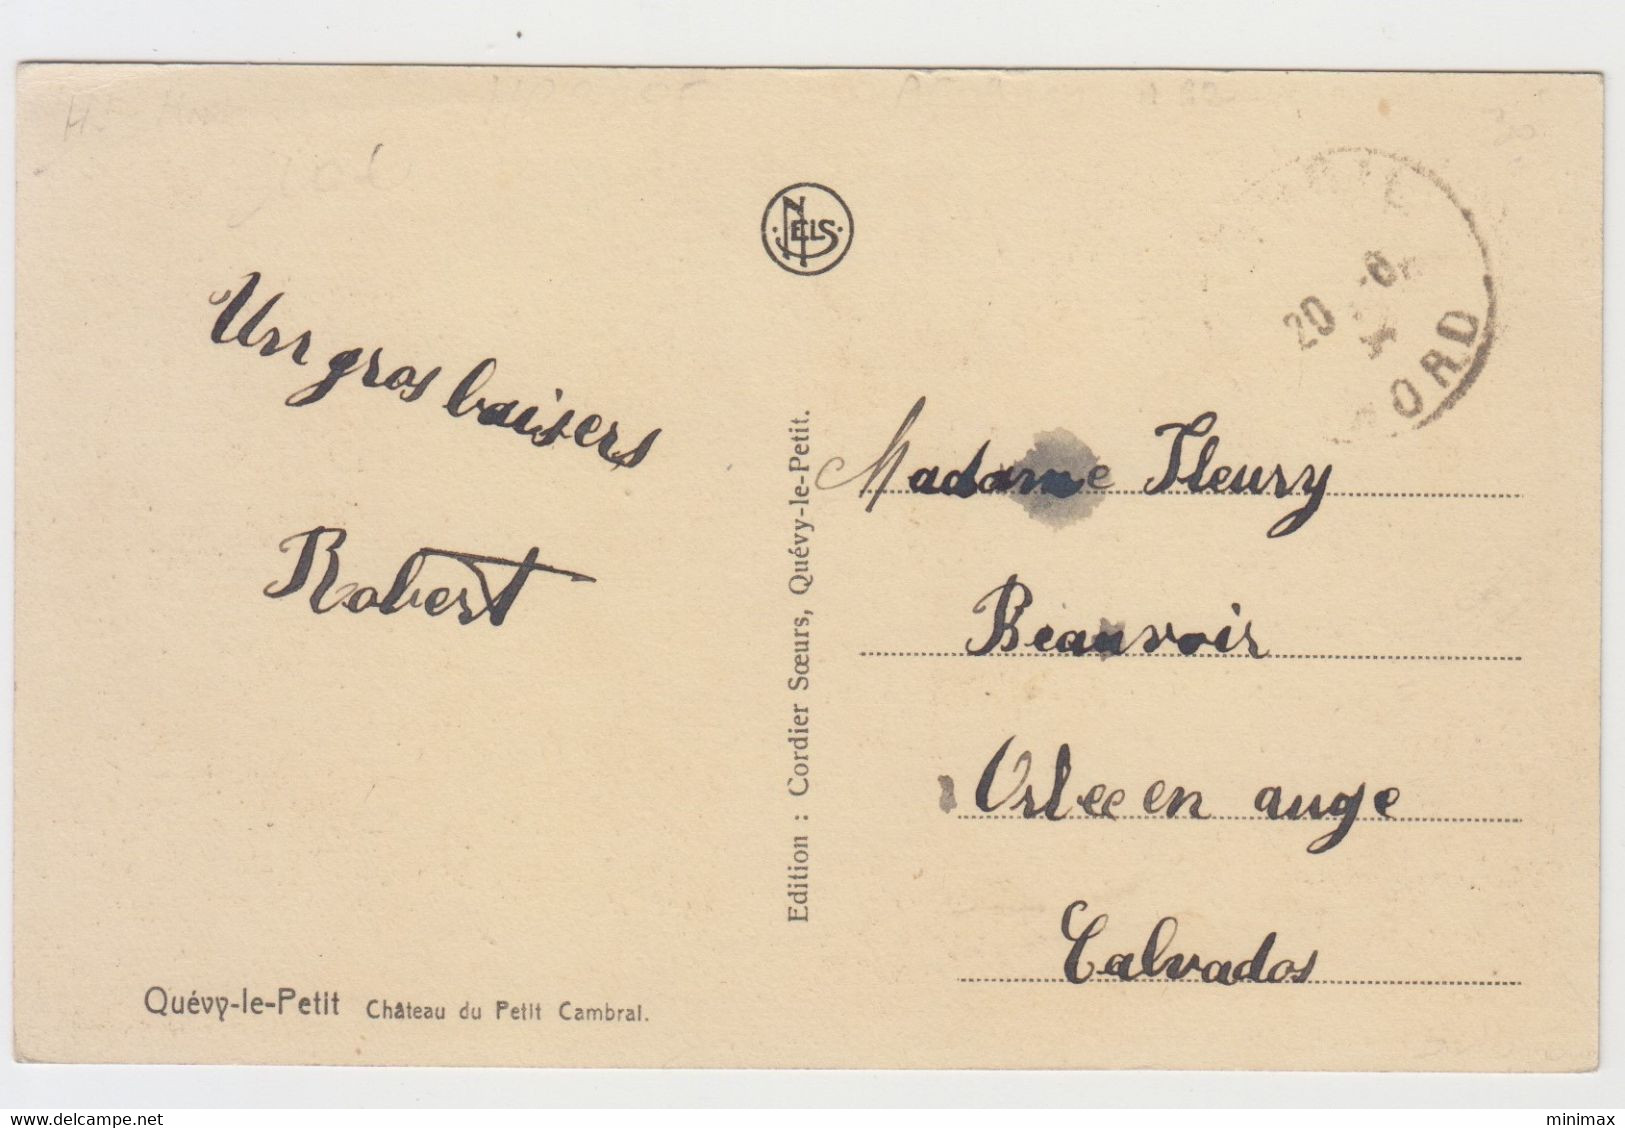 NELS
Un gros baisers
Robert
Quévy-le-Petit Château du Petit Cambrai.
Edition : Cordier Sœurs, Quévy-le-Petit.
20 -6
ORD
Madame Fleury
Beauvoir
Orlee en auge
Calvados
www.delcampe.net
minimax